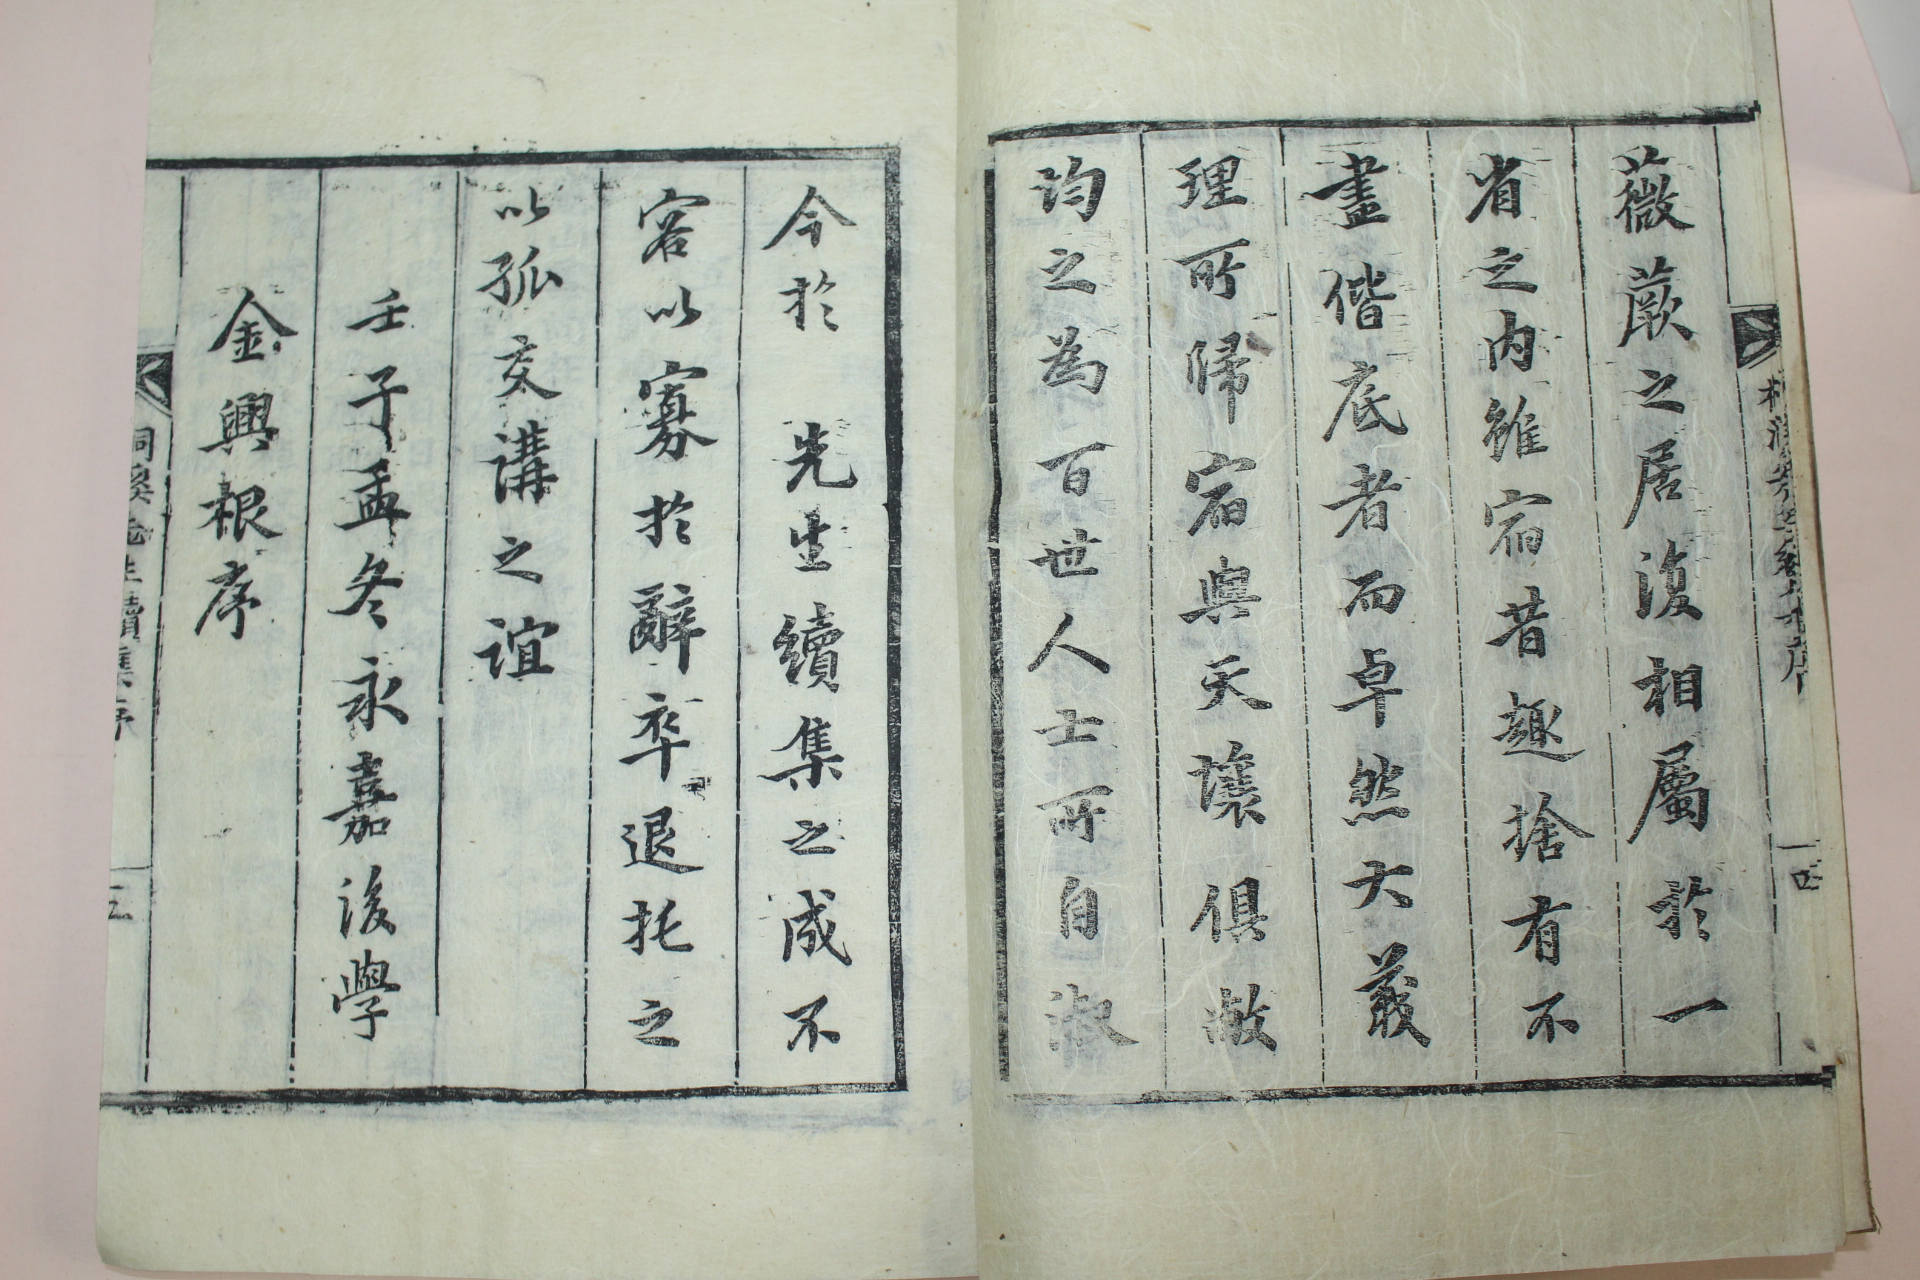 薇蕨之居復相屬於一
省之内雖宿昔趣捨有不
盡偕底者而卓然大義
理所歸宿與天壤俱敝
均之為百世人士所自淑
今於 先生續集之成不
容以寡於辭卒退托之
以孤交講之誼
壬子孟冬永嘉後學
金興根序